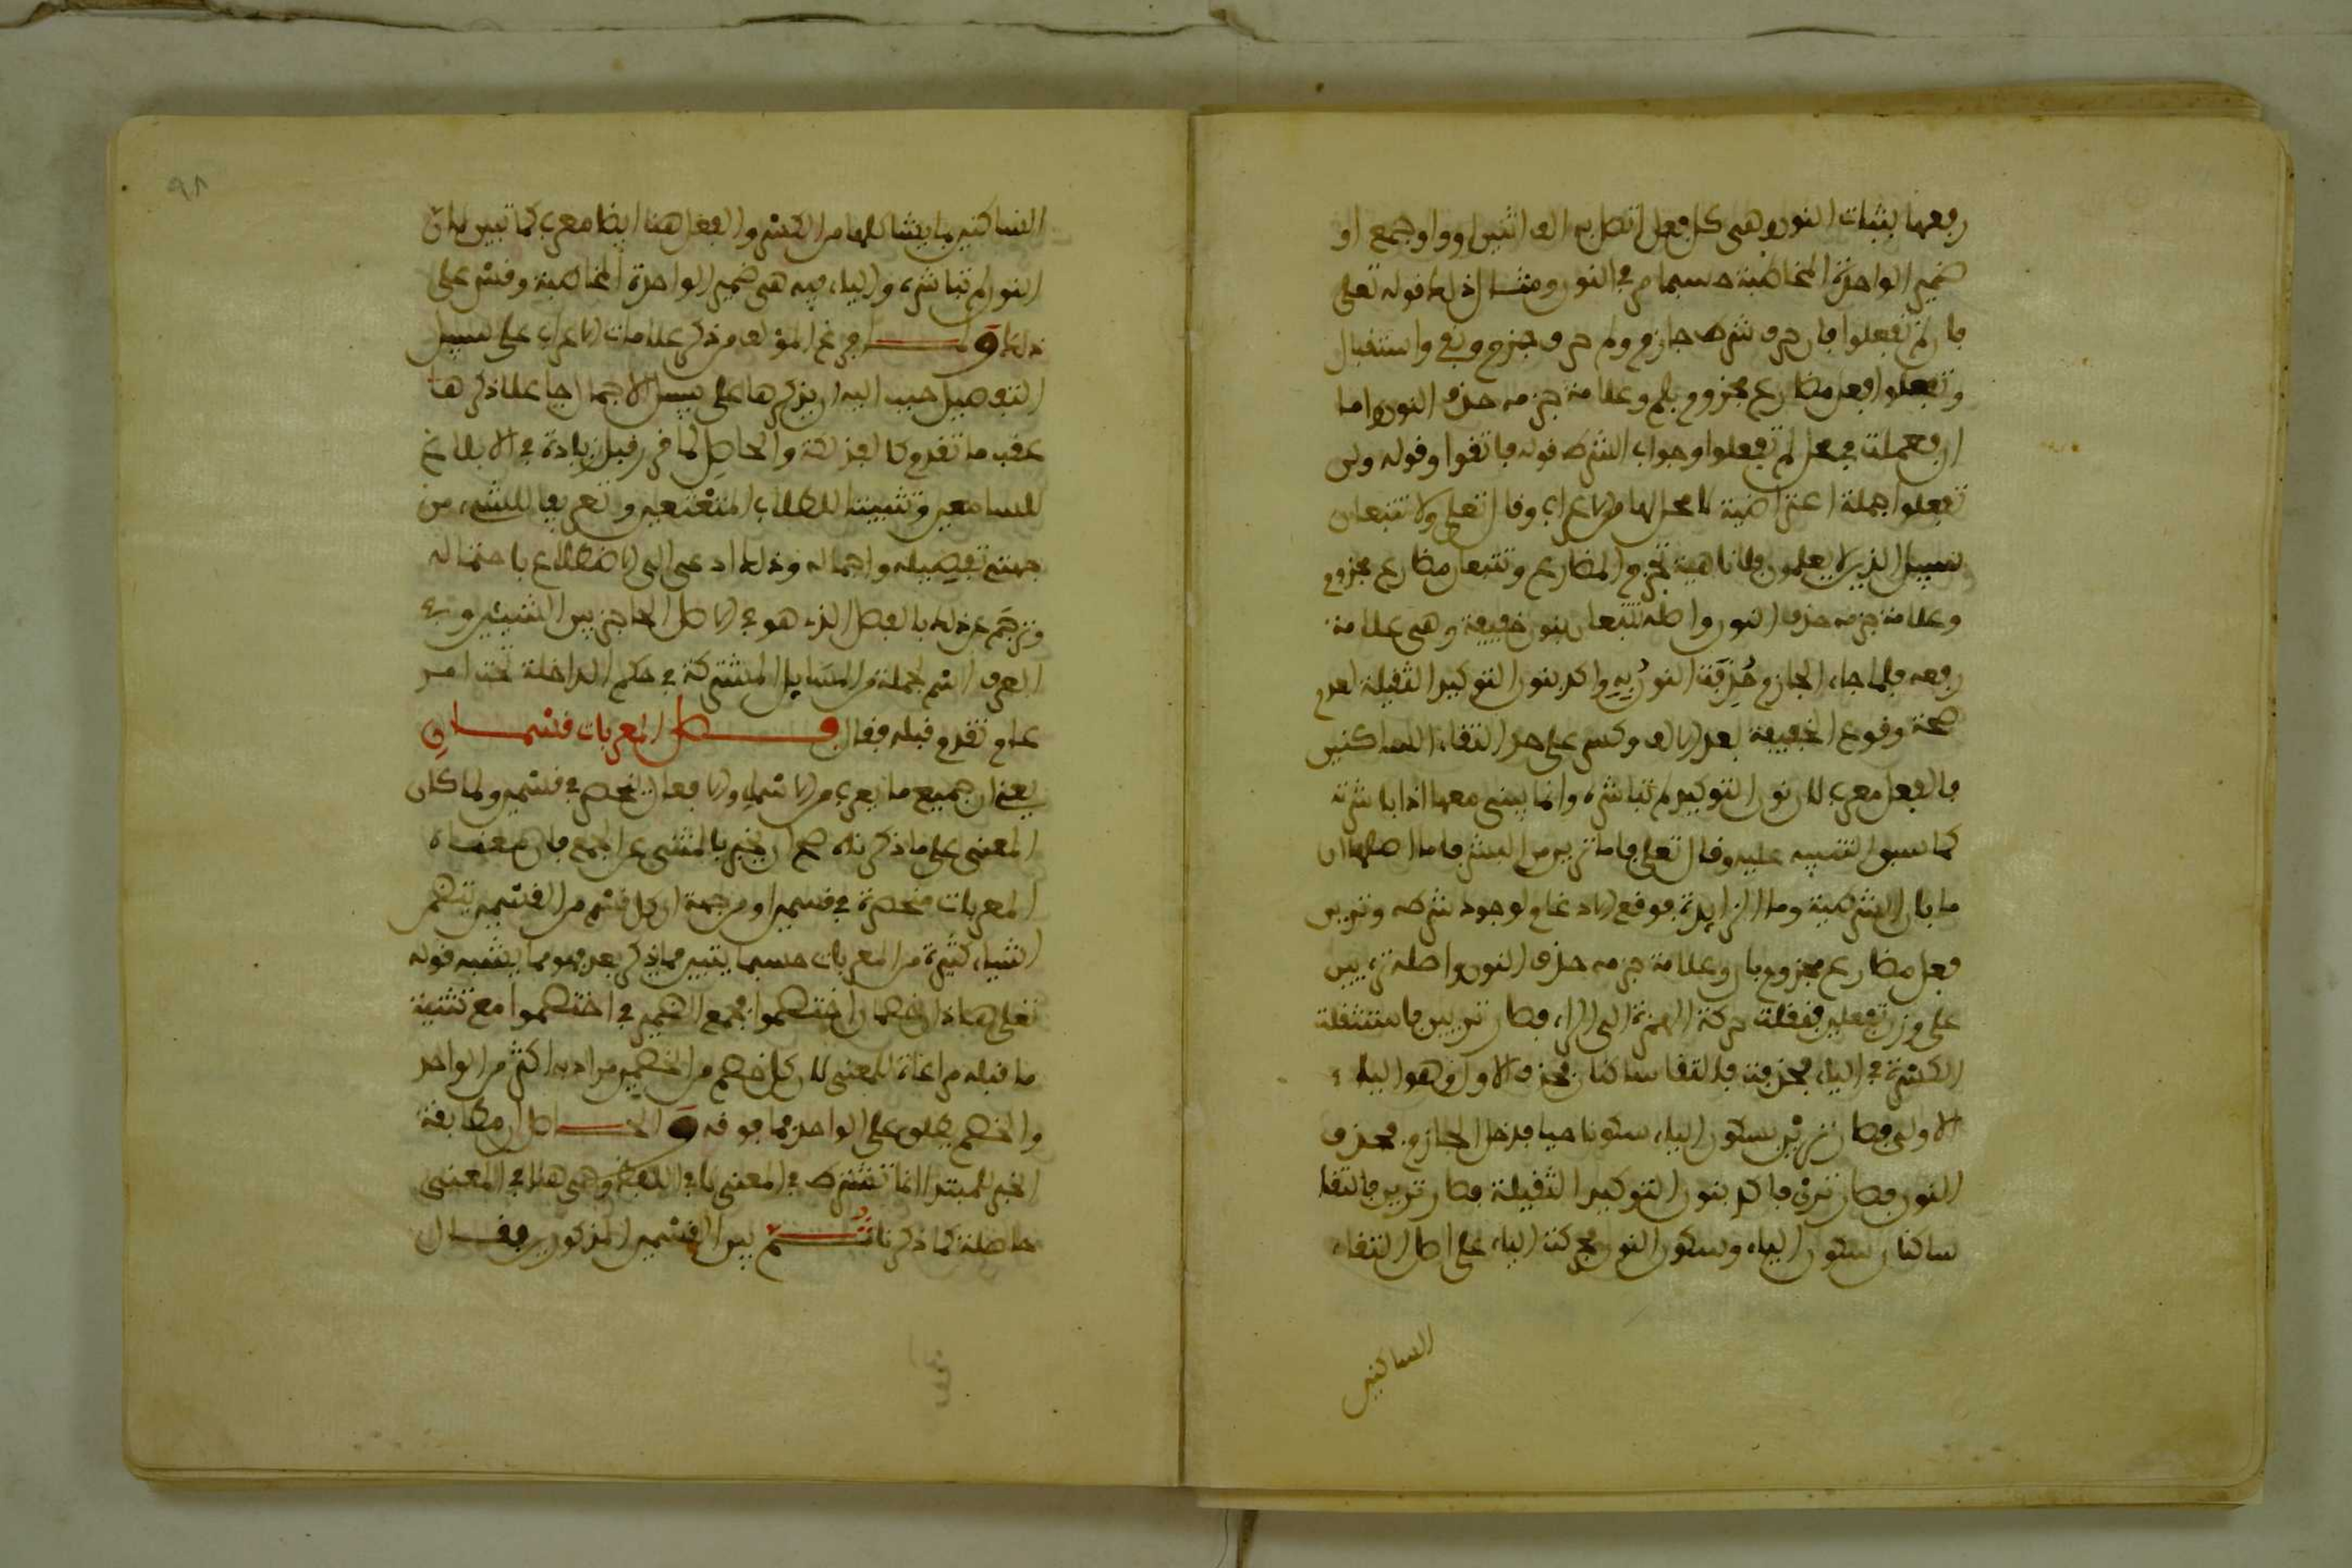 رفعها بثبات النون وهي كل فعل اتصل به الف اثنين او واو جمع او
ضمير الواحدة المخاطبة حسبما مر في النون ومثال ذلك قوله تعلى
فان لم تفعلوا فان حرف شرط جازم ولم حرف جزم ونفي واستقبال
وتفعلوا فعل مضارع مجزوم بلم وعلامة جزمه حذف النون واما
ان فعملت في محل لم تفعلوا وجواب الشرط قوله فاتقوا وقوله ولن
تفعلوا جملة اعتراضية لا محل لها من الاعراب وقال تعلى ولا تتبعان
سبيل الذين لا يعلمون فلا ناهية تجزم المضارع وتتبعان مضارع مجزوم
وعلامة جزمه حذف النون واصله تتبعان بنون خفيفة وهي علامة
رفعه فلما جاء الجازم حذفت النون به واكد بنون التوكيد الثقيلة لعدم
صحة وقوع الخفيفة بعد الالف وكسر على حد التقاء الساكنين
فالفعل معرب لان نون التوكيد لم تباشره وانما يبنى معها اذا باشرته
كما سبق التنبيه عليه وقال تعلى فاما ترين من البشر فاما اصلها ان
ما بان الشرطية وما الزايدة فوقع الادغام لوجود شرطه وترين
فعل مضارع مجزوم بان وعلامة جزمه حذف النون واصله ترءيين
على وزن تفعلين فنقلت حركة الهمزة الى الراء فصار تريين فاستثقلت
الكسرة في الياء فحذفت فالتقا ساكنان فحذف الاول وهو الياء
الاولى فصار ترين بسكون الياء سكونا حيا فدخل الجازم فحذف
النون فصار ترى فاكد بنون التوكيد الثقيلة فصار ترين فالتقا
ساكنان سكون الياء وسكون النون فحركت الياء على اصل التقاء
الساكنين
٩٨
الساكنين بما يشاكلها من الكسر والفعل هنا ايضا معرب كما تبين لان
النون لم تباشره والياء فيه هي ضمير الواحدة المخاطبة وقس على
ذلك ولما فرغ المؤلف من ذكر علامات الاعراب على سبيل
التفصيل حبب اليه ان يذكرها على سبيل الاجمال جاعلا ذكرها
عقب ما تقدم كالفذلكة والحاصل لما في قبل زيادة في الابلاغ
للسامعين وتثبيتا للطلاب المنتفعين وتعريفا للشيء من
جهتي تفصيله واجماله وذلك ادعى الى الاضطلاع باحتماله
وترجم عن ذلك بالفصل الذي هو في الاصل الحاجز بين الشيئين وفي
العرف اسم لجملة من المسايل المشتركة في حكم الداخلة تحت امر
عام تقدم قبله فقال فصل المعربات قسمان
يعني ان جميع ما يعرب من الاسماء والافعال ينحصر في قسمين ولما كان
المعنى على ما ذكرناه صح ان يخبر بالمثنى عن الجمع فان معناه
المعربات منحصرة في قسمين او من جهة ان كل قسم من القسمين يتضمن
اشياء كثيرة من المعربات حسبما يتبين مما يذكر بعد فهو مما يشبه قوله
تعلى هاذان خصمان اختصموا فجمع الضمير في اختصموا مع تثنية
ما قبله مراعاة للمعنى لان كل خصم من الخصمين مراد به اكثر من الواحد
والخصم يطلق على الواحد فما فوقه والحاصل ان مطابقة
الخبر للمبتدا انما تشترط في المعنى لا في اللفظ وهي هنا في المعنى
حاصلة كما ذكرنا ثم بين القسمين المذكورين فقال